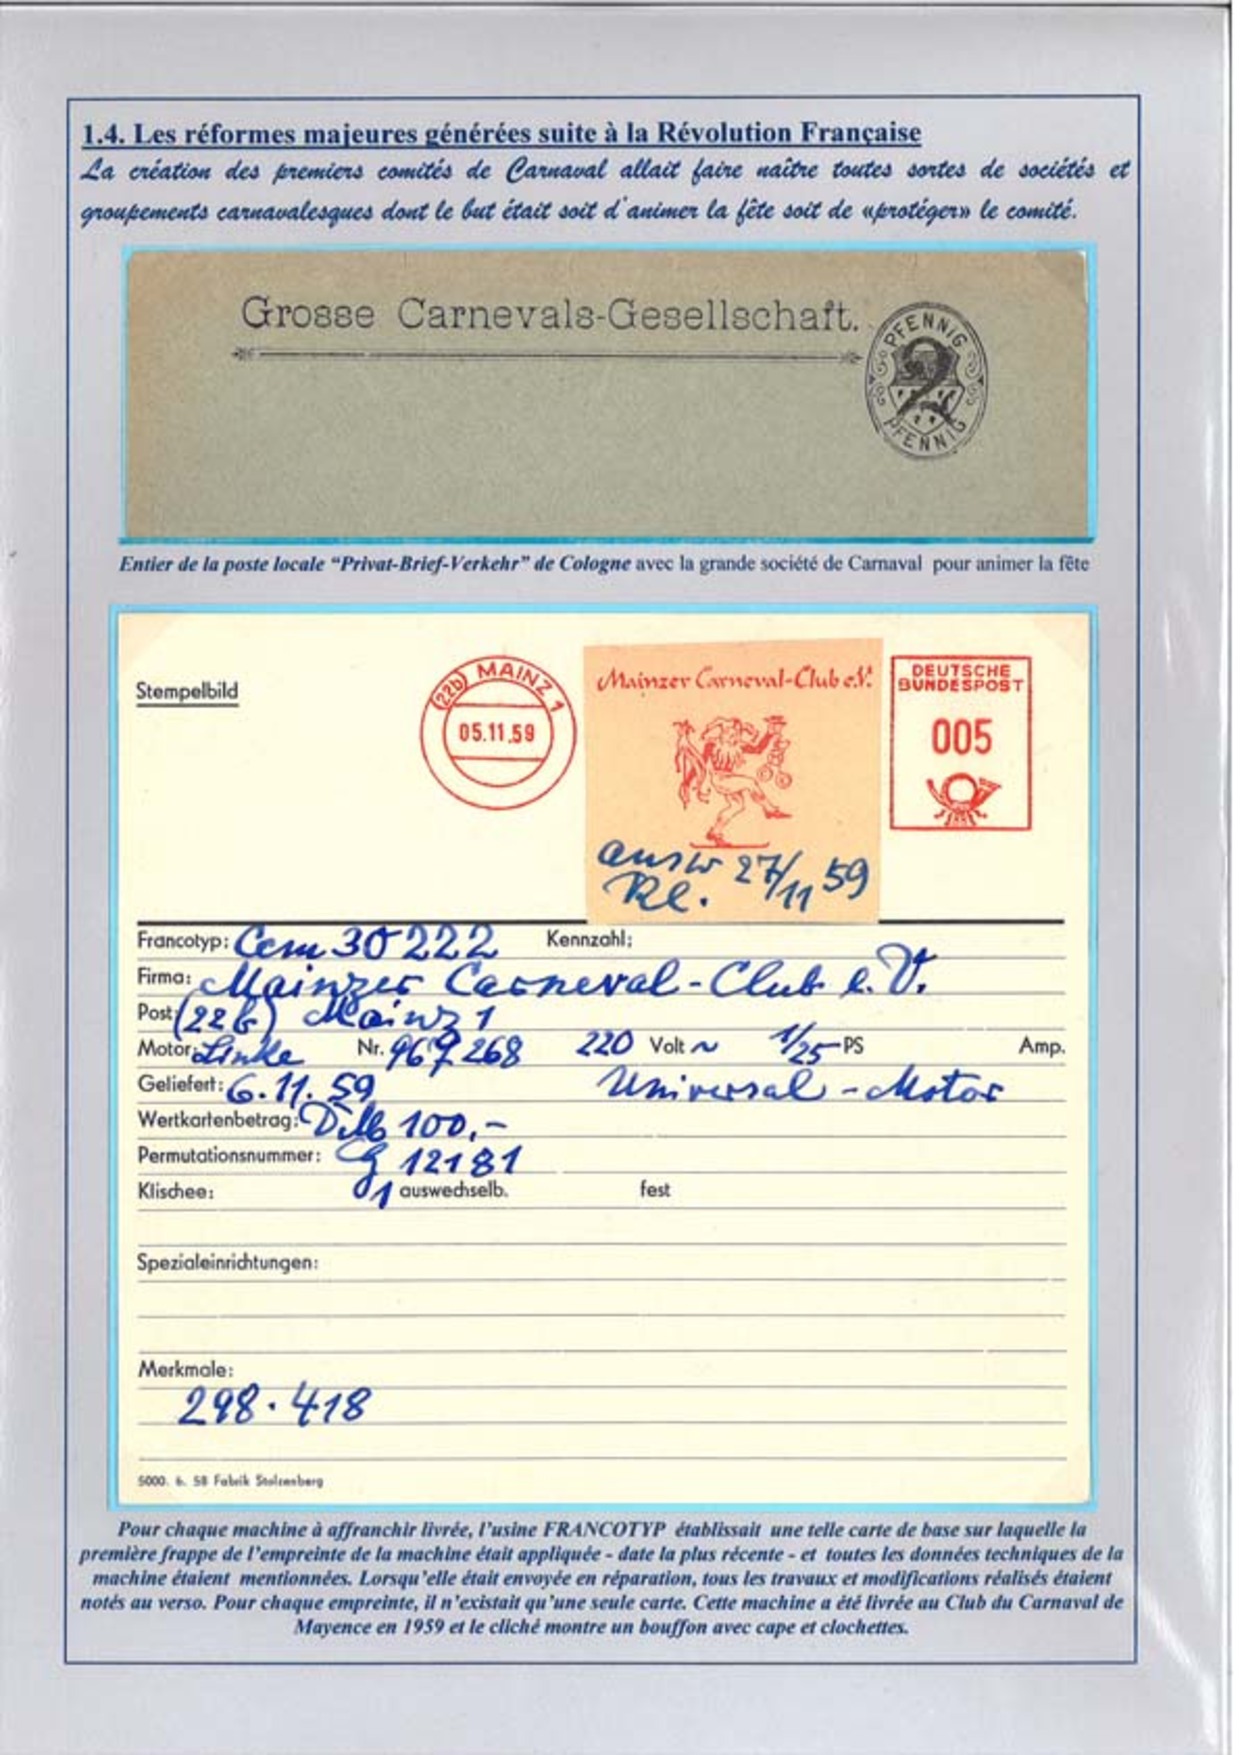 1.4. Les réformes majeures générées suite à la Révolution Française
La création des premiers comités de Carnaval allait faire naître toutes sortes de sociétés et
groupements carnavalesques dont le but était soit d'animer la fête soit de «protéger» le comité.
Grosse Carnevals-Gesellschaft.
PFENNIG
2
PFENNIG
Entier de la poste locale “Privat-Brief-Verkehr” de Cologne avec la grande société de Carnaval pour animer la fête
Stempelbild
(22b) MAINZ 1
05.11.59
Mainzer Carneval-Club e.V.
DEUTSCHE
BUNDESPOST
005
ausw 27/11 59
Kl.
Francotyp: Ccm 30 222 Kennzahl:
Firma: Mainzer Carneval-Club e.V.
Post: (22b) Mainz 1
Motor: Linke Nr. 967 268 220 Volt ~ 1/25 PS Amp.
Geliefert: 6.11.59 Universal-Motor
Wertkartenbetrag: DM 100,-
Permutationsnummer: G 12181
Klischee: 01 auswechselb. fest
Spezialeinrichtungen:
Merkmale:
298·418
5000. 6. 58 Fabrik Stolzenberg
Pour chaque machine à affranchir livrée, l'usine FRANCOTYP établissait une telle carte de base sur laquelle la
première frappe de l'empreinte de la machine était appliquée - date la plus récente - et toutes les données techniques de la
machine étaient mentionnées. Lorsqu'elle était envoyée en réparation, tous les travaux et modifications réalisés étaient
notés au verso. Pour chaque empreinte, il n'existait qu'une seule carte. Cette machine a été livrée au Club du Carnaval de
Mayence en 1959 et le cliché montre un bouffon avec cape et clochettes.